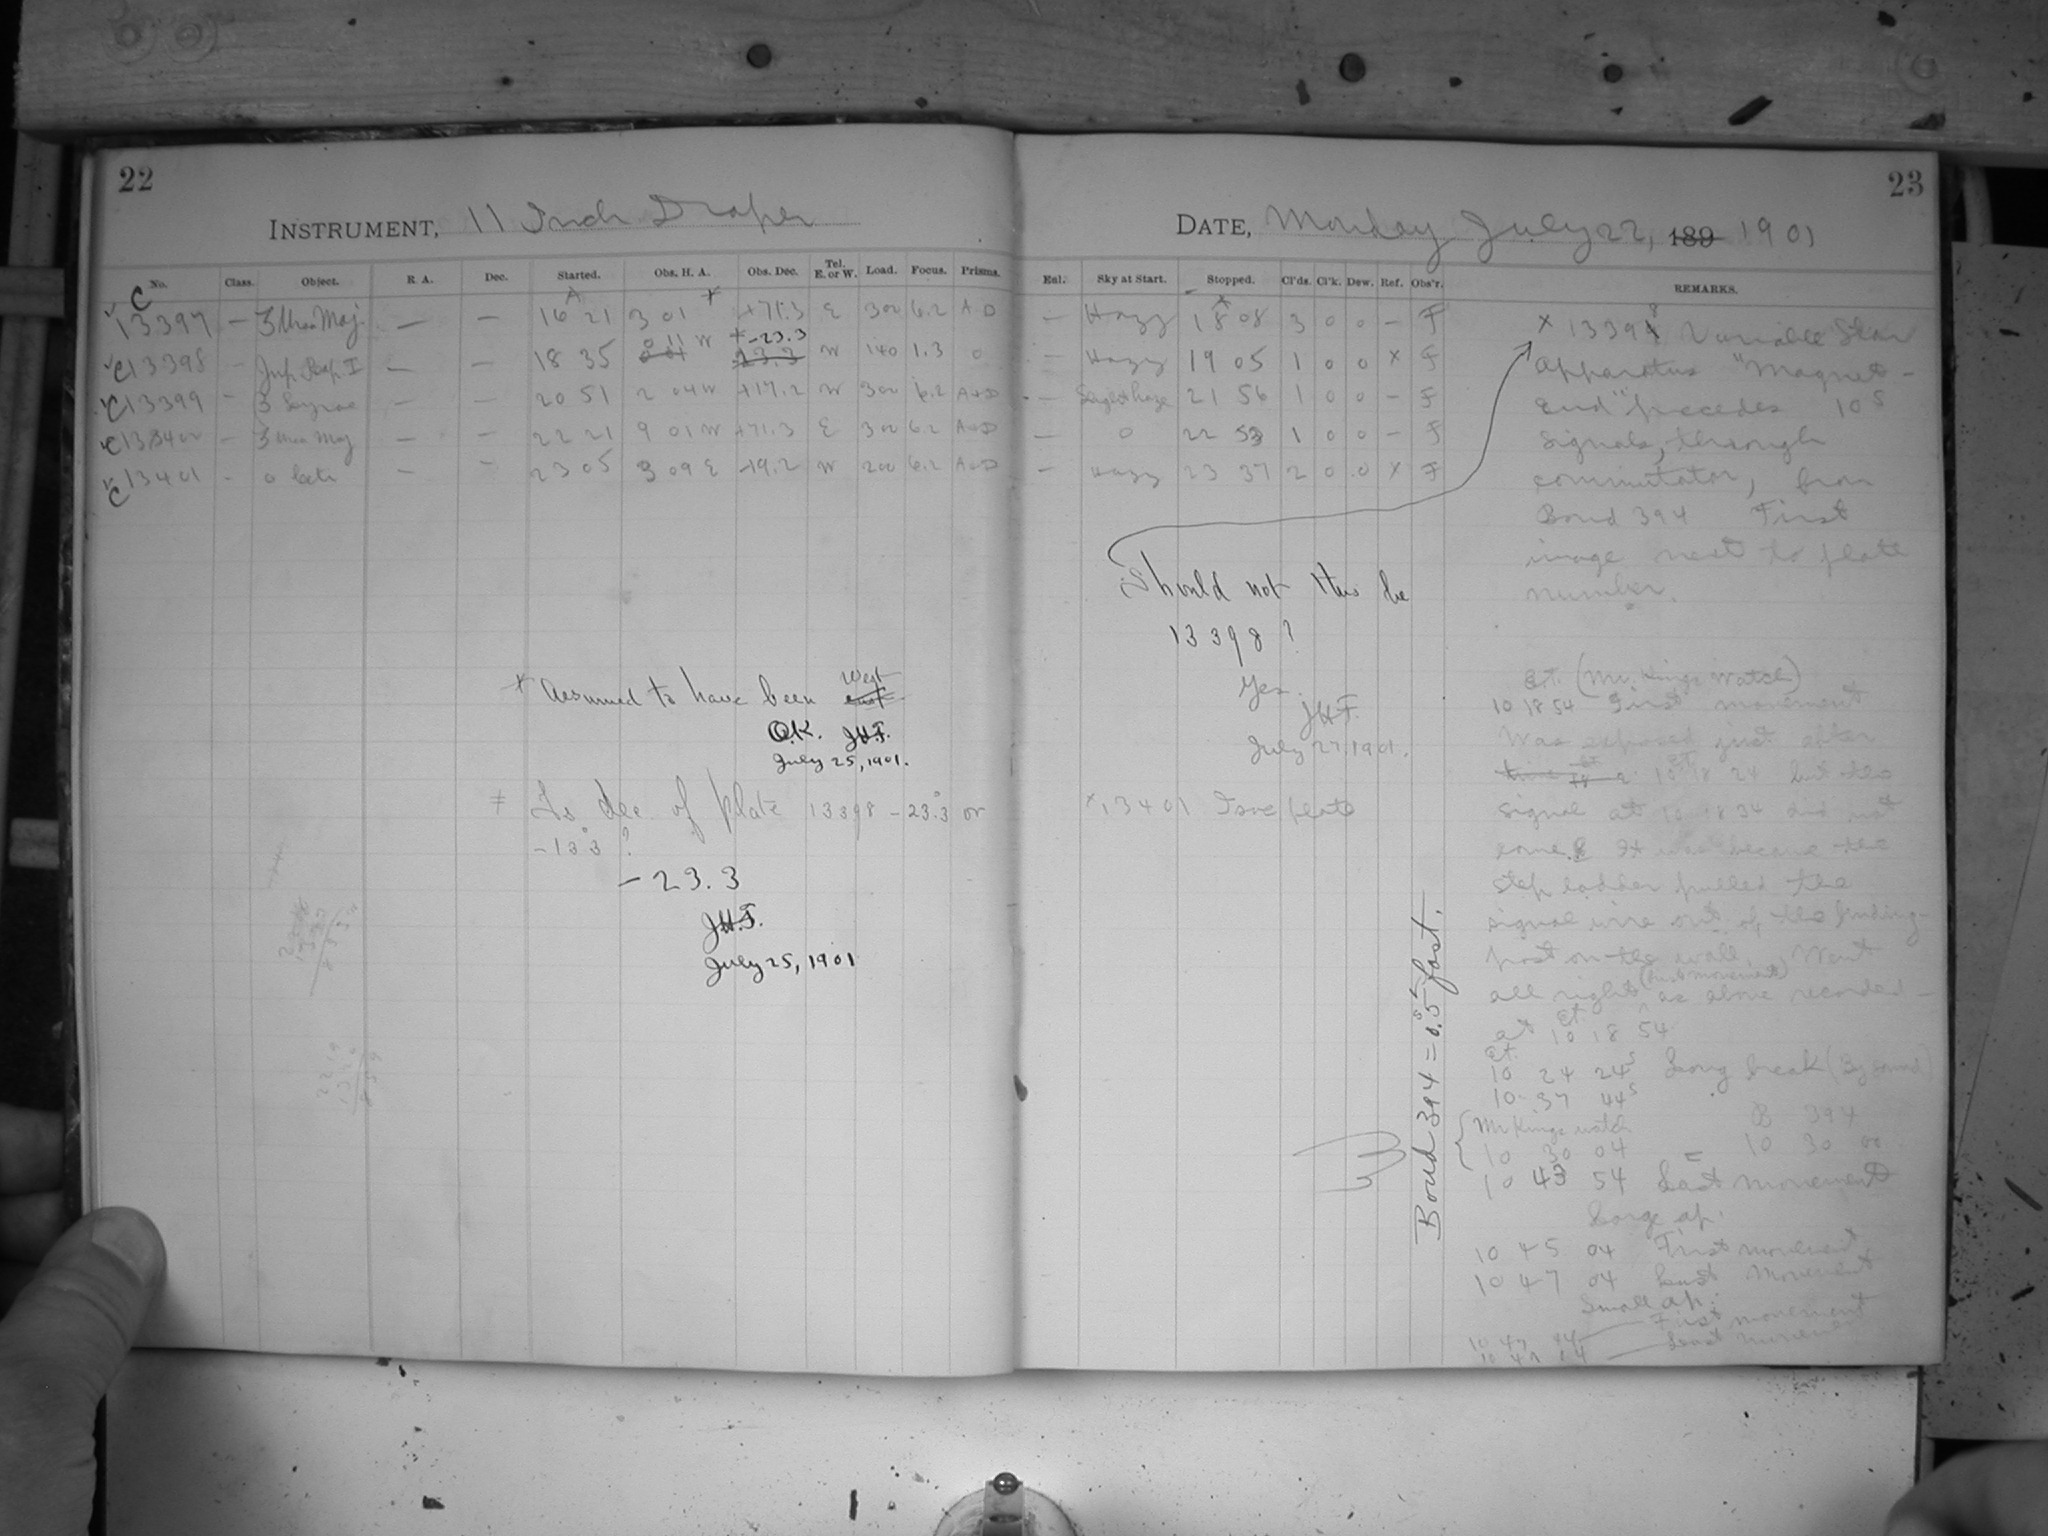 22
INSTRUMENT, 11 Inch Draper
No. Class. Object. R. A. Dec. Started. Obs. H. A. Obs. Dec. Tel. E. or W. Load. Focus. Prisms.
C 13397 — 3 Ursa Maj. — — 16 21 3 01 * +71.3 E 300 6.2 A+D
C 13398 — Jup. I — — 18 35 0 11 W ≠ -23.3 W 140 1.3 0
C 13399 — 3 Lyrae — — 20 51 2 04 W +17.2 W 300 6.2 A+D
C 13400 — 3 Ursa Maj — — 22 21 9 01 W +71.3 E 300 6.2 A+D
C 13401 - o Ceti — — 23 05 3 09 E W 200 6.2 A+D
* Assumed to have been West
O.K. J.H.F.
July 25, 1901.
≠ Is dec of plate 13398 -23.3 or
-13.3 ?
-23.3
J.H.F.
July 25, 1901
23
DATE, Monday July 22, 189 1901
Enl. Sky at Start. Stopped. Cl'ds. Cl'k. Dew. Ref. Obs'r. REMARKS.
— Hazy 18 08 3 0 0 — F
— Hazy 19 05 1 0 0 x F
— Slight haze 21 56 1 0 0 — F
— 0 22 53 1 0 0 — F
— Hazy 23 37 2 0 0 x F
Should not this be
13398 ?
Yes.
J.H.F.
July 27, 1901.
x 13401 Isoc plate
Bond 394 = 0.5s fast.
x 13398 Variable Star
Apparatus "Magnet-
End" precedes 10s
signals, through
commutator, from
Bond 394 First
image next to plate
number.
E.T. (Mr. Kings Watch)
10 18 54 First movement
Was exposed just after
10 18 24 but the
signal at 10 18 34 did not
come. It was because the
step ladder pulled the
signal wire out of the binding-
post on the wall. Went
all right (first movement) as above recorded
at 10 18 54
E.T.
10 24 24s Long break (By sound)
10 37 44s
Mr Kings watch B 394
10 30 04 = 10 30 00
10 43 54 Last movement
Large ap.
10 45 04 First movement
10 47 04 Last movement
Small ap.
First movement
Last movement